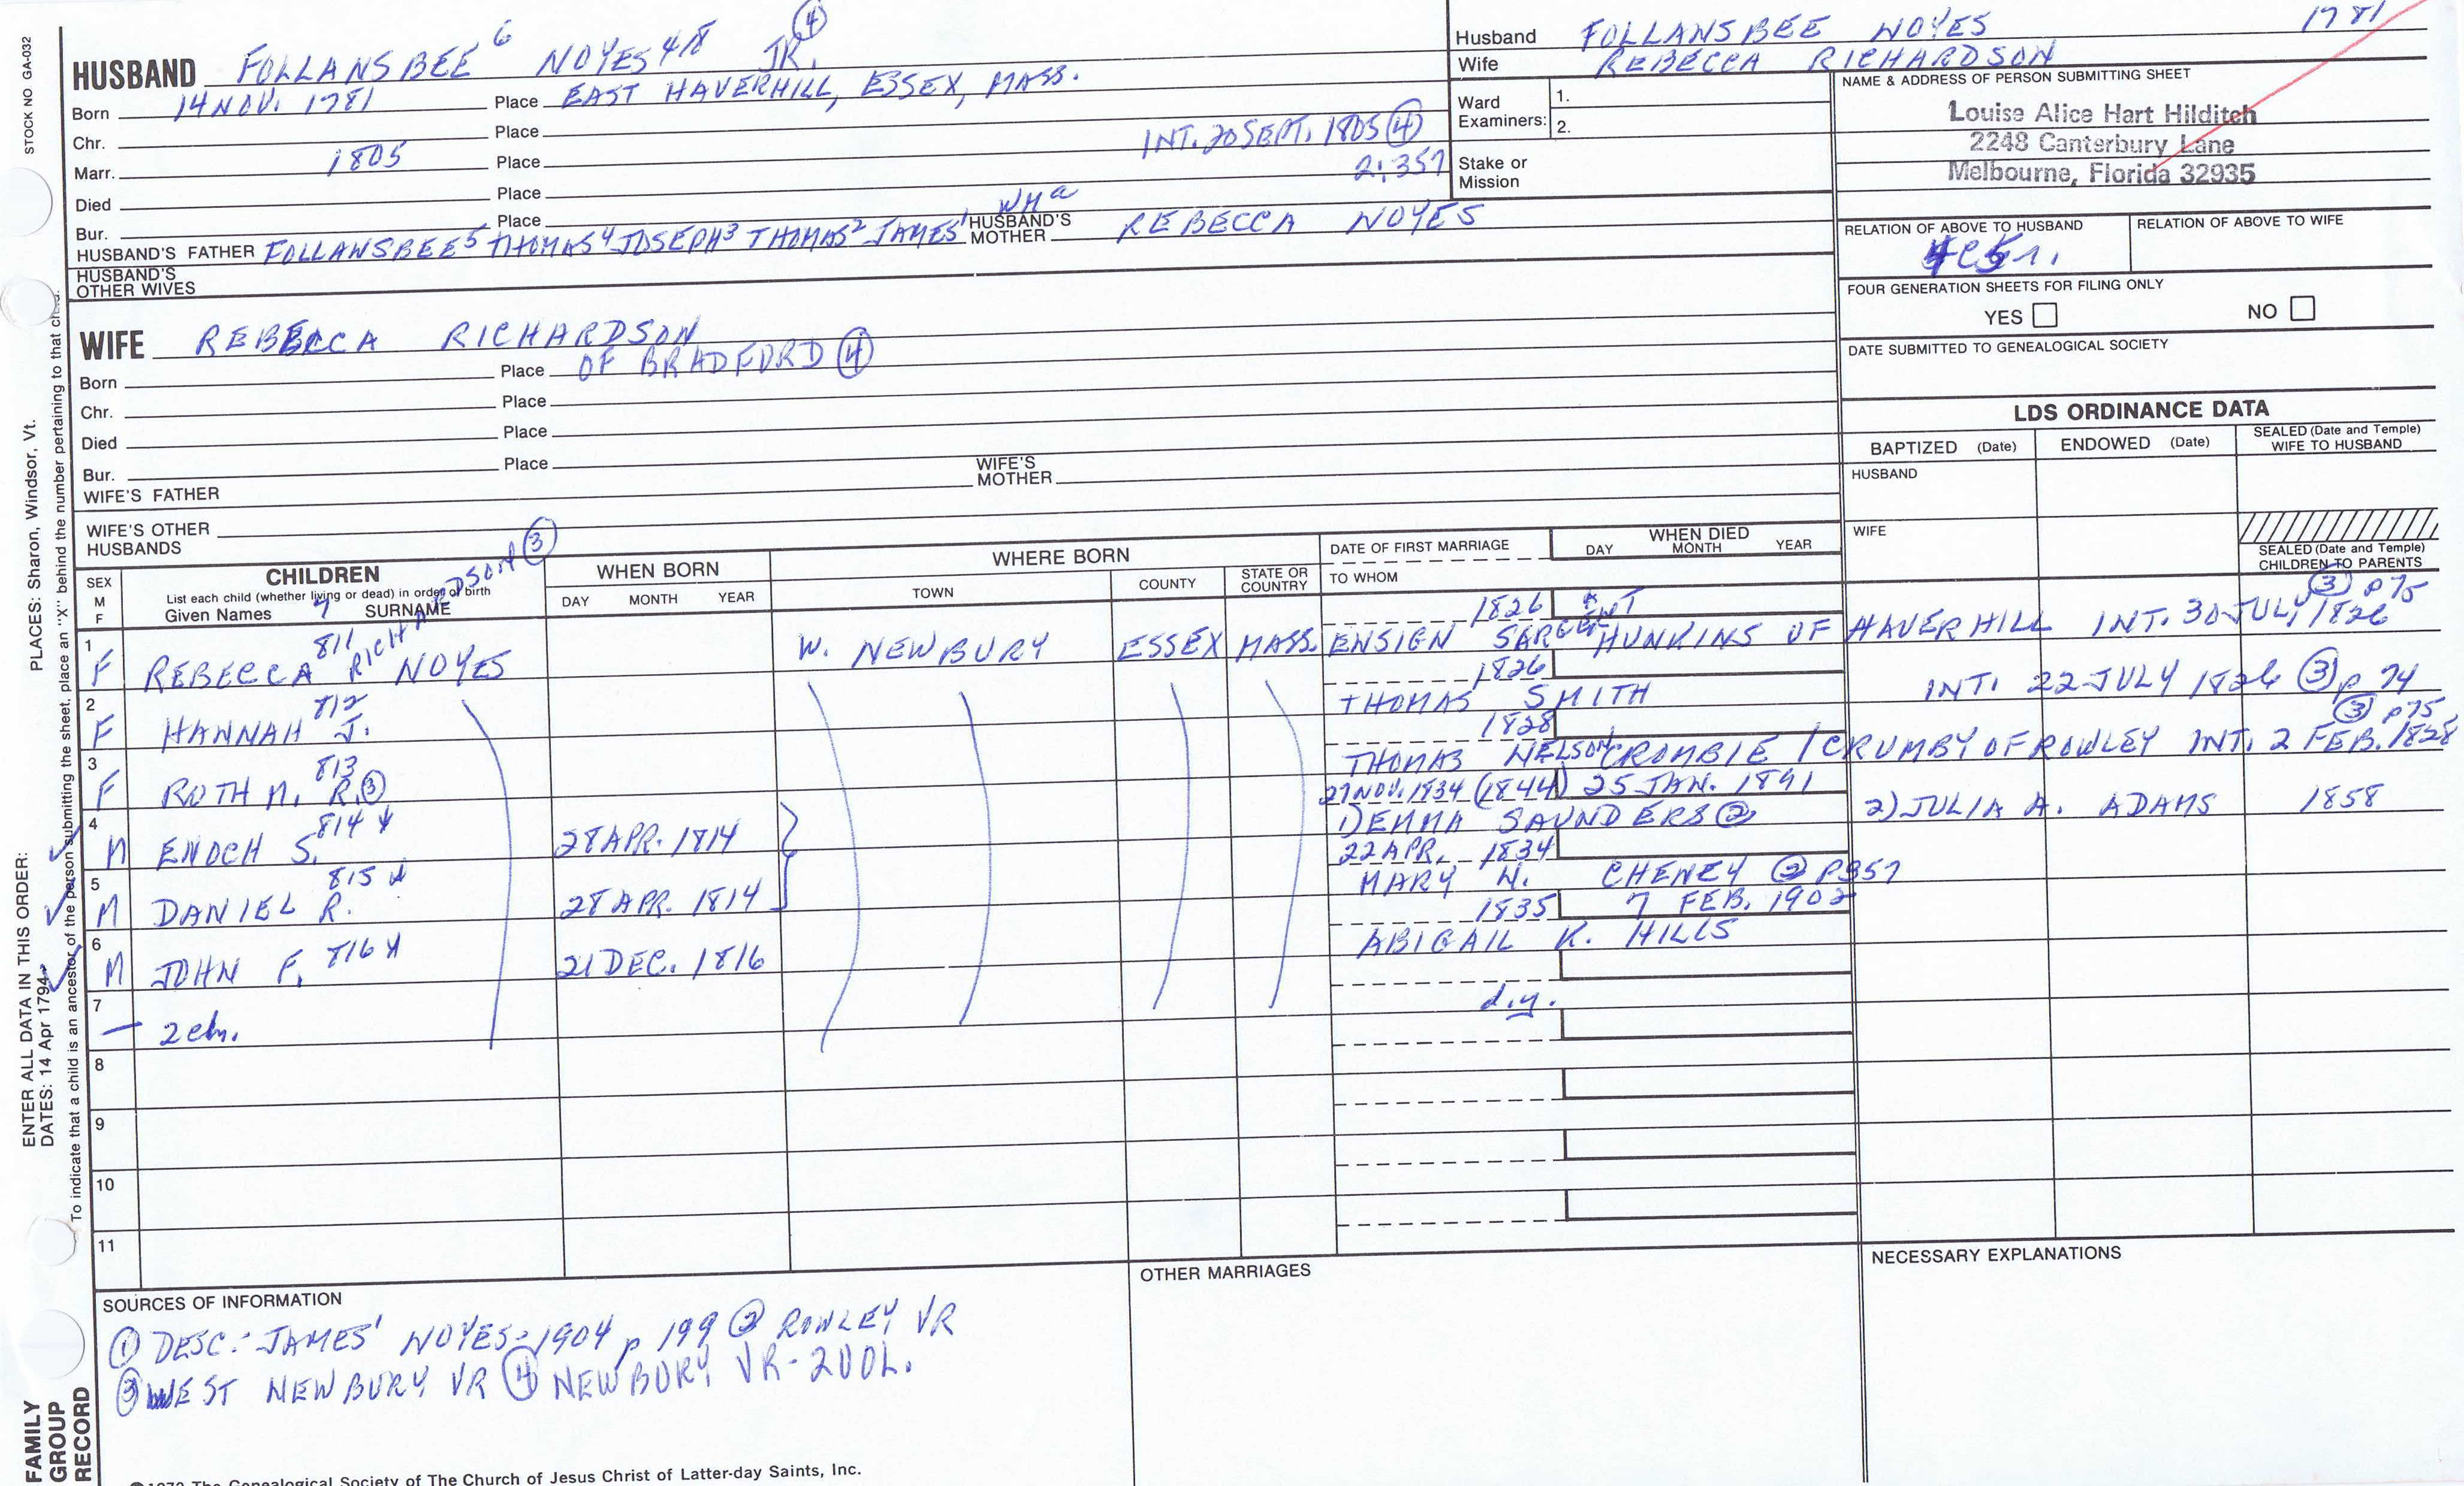 STOCK NO GA-032
HUSBAND FOLLANSBEE 6 NOYES 418 JR. ④
Born 14 NOV. 1781 Place EAST HAVERHILL, ESSEX, MASS.
Chr. Place
Marr. 1805 Place INT. 20 SEPT. 1805 ④
Died Place 2:357
Bur. Place
HUSBAND'S FATHER FOLLANSBEE5 THOMAS4 JOSEPH3 THOMAS2 JAMES1 HUSBAND'S MOTHER REBECCA NOYES
HUSBAND'S OTHER WIVES
Husband FOLLANSBEE NOYES 1781
Wife REBECCA RICHARDSON
Ward Examiners: 1.
2.
Stake or Mission
NAME & ADDRESS OF PERSON SUBMITTING SHEET
Louise Alice Hart Hilditch
2248 Canterbury Lane
Melbourne, Florida 32935
RELATION OF ABOVE TO HUSBAND
RELATION OF ABOVE TO WIFE
FOUR GENERATION SHEETS FOR FILING ONLY
YES NO
DATE SUBMITTED TO GENEALOGICAL SOCIETY
WIFE REBECCA RICHARDSON
Born Place OF BRADFORD ④
Chr. Place
Died Place
Bur. Place
WIFE'S FATHER WIFE'S MOTHER
WIFE'S OTHER HUSBANDS
LDS ORDINANCE DATA
BAPTIZED (Date) ENDOWED (Date) SEALED (Date and Temple) WIFE TO HUSBAND
HUSBAND
WIFE
SEALED (Date and Temple) CHILDREN TO PARENTS
SEX M F
CHILDREN
List each child (whether living or dead) in order of birth
Given Names 7 SURNAME
WHEN BORN
DAY MONTH YEAR
WHERE BORN
TOWN COUNTY STATE OR COUNTRY
DATE OF FIRST MARRIAGE
TO WHOM
WHEN DIED
DAY MONTH YEAR
1 F REBECCA 811 RICHARDSON ③ NOYES W. NEWBURY ESSEX MASS. 1826 ENSIGN SARGENT HUNKINS OF HAVERHILL INT. 30 JULY 1826 ③ p 75
2 F HANNAH J. 812 1826 THOMAS SMITH INT. 22 JULY 1826 ③ p 74
3 F RUTH N. R.③ 813 1828 THOMAS NELSON CROMBIE / CRUMBY OF ROWLEY INT. 2 FEB. 1828 ③ p75
4 M ENOCH S. 814 28 APR. 1814 27 NOV. 1834 (1844) 25 JAN. 1891 DEMMA SAUNDERS② 2) JULIA A. ADAMS 1858
5 M DANIEL R. 815 28 APR. 1814 22 APR. 1834 MARY H. CHENEY ② P357
6 M JOHN F. 816 21 DEC. 1816 1835 7 FEB. 1902 ABIGAIL K. HILLS
7 — 2 ch. d.y.
8
9
10
11
SOURCES OF INFORMATION
① DESC.-JAMES' NOYES-1904 p 199 ② ROWLEY VR
③ WEST NEWBURY VR ④ NEWBURY VR-2VOL.
OTHER MARRIAGES
NECESSARY EXPLANATIONS
The Genealogical Society of The Church of Jesus Christ of Latter-day Saints, Inc.
ENTER ALL DATA IN THIS ORDER:
DATES: 14 Apr 1794
PLACES: Sharon, Windsor, Vt.
To indicate that a child is an ancestor of the person submitting the sheet, place an "X" behind the number pertaining to that
FAMILY
GROUP
RECORD